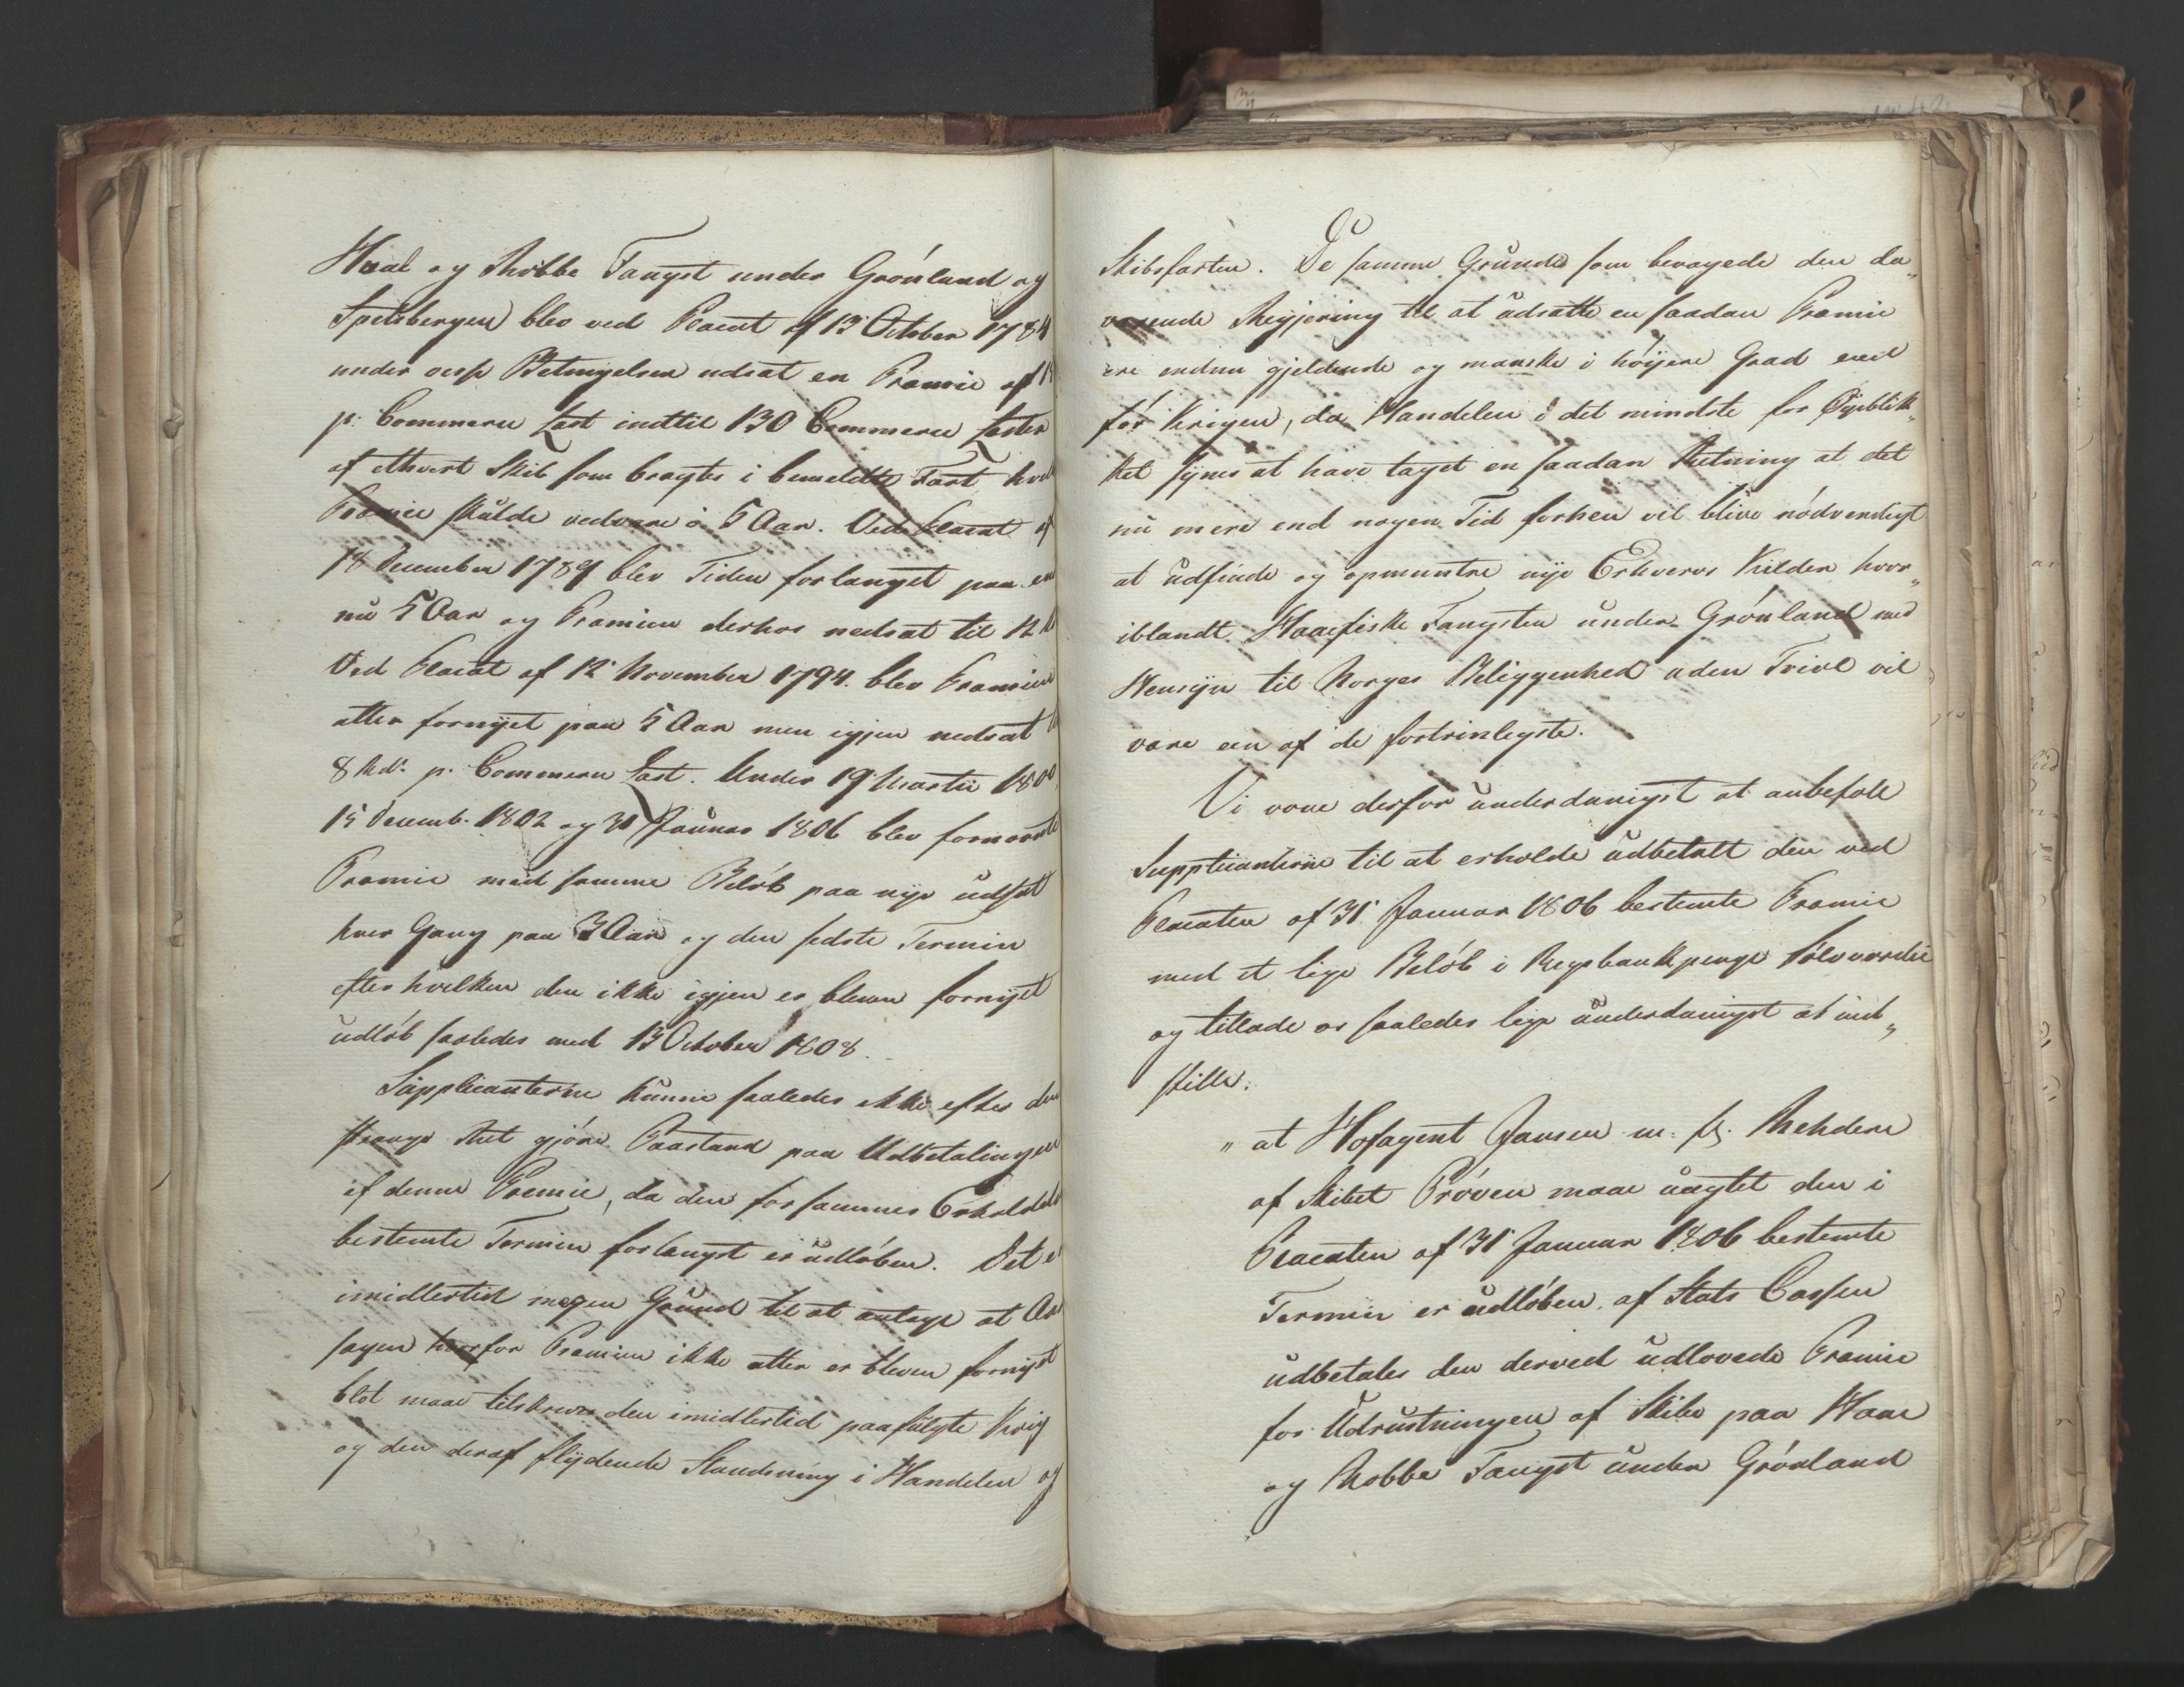 Hval og Robbe Fangst under Grønland og
Spitsbergen blev ved Placat af 13 October 1784
under visse Betingelser udsat en Præmie af
p: Commerce Last indtil 130 Commerce Læster
af ethvert Skib som bragtes i bemeldte Fart
Præmie skulde vedvare i 5 Aar. Ved Placat af
18 December 1789 blev Tiden forlænget paa en
nu 5 Aar og Præmien derhos nedsat til 12
Ved Placat af 12 November 1794. blev Præmien
atter fornyet paa 5 Aar men igjen nedsat
8 Rd. p. Commerce Last. Under 19 Martii 1800
15 Decemb. 1802 og 31 Januar 1806 blev fornævnte
Præmie med samme Beløb paa nye udsat
hver Gang paa 3 Aar og den sidste Termin
efter hvilken den ikke igjen er bleven fornyet
udløb saaledes med 13 October 1808.
Supplicanterne kunne saaledes ikke efter den
strænge Ret gjøre Paastand paa Udbetalingen
af denne Præmie, da den for sammes Erholdelse
bestemte Termin forlængst er udløben. Det
imidlertid megen Grund til at antage at Aar
sagen hvorfor Præmien ikke atter er bleven fornyet
blot maae tilskrives den imidlertid paafulgte Krig
og den deraf flydende Standsning i Handelen og
Skibsfarten. De samme Grunde som bevægede den da„
værende Regjering til at udsætte en saadan Præmie
ere endnu gjeldende og maaskee i høyere Grad end
før Krigen, da Handelen i det mindste for Øyeblik„
ket synes at have taget en saadan Retning at det
nu mere end nogen Tid forhen vil blive nødvendigt
at udfinde og opmuntre nye Erhvervs Kilder hvor„
iblandt Hvalfiske Fangsten under Grønland med
Hensyn til Norges Beliggenhed uden Tvivl vil
være een af de fortrinligste.
Vi vove derfor underdanigst at anbefale
Supplicanterne til at erholde udbetalt den ved
Placaten af 31 Januar 1806 bestemte Præmie
med et lige Beløb i Regsbankpenge Sølvværdie
og tillade os saaledes lige underdanigst at ind„
stille:
„ at Hofagent Jansen m: fl. Rehdere
af Skibet Prøven maae uagtet den i
Placaten af 31 Januar 1806 bestemte
Termin er udløben, af Stats Cassen
udbetales den derved udlovede Præmie
for Udrustningen af Skibe paa Hval
og Robbe Fangst under Grønland